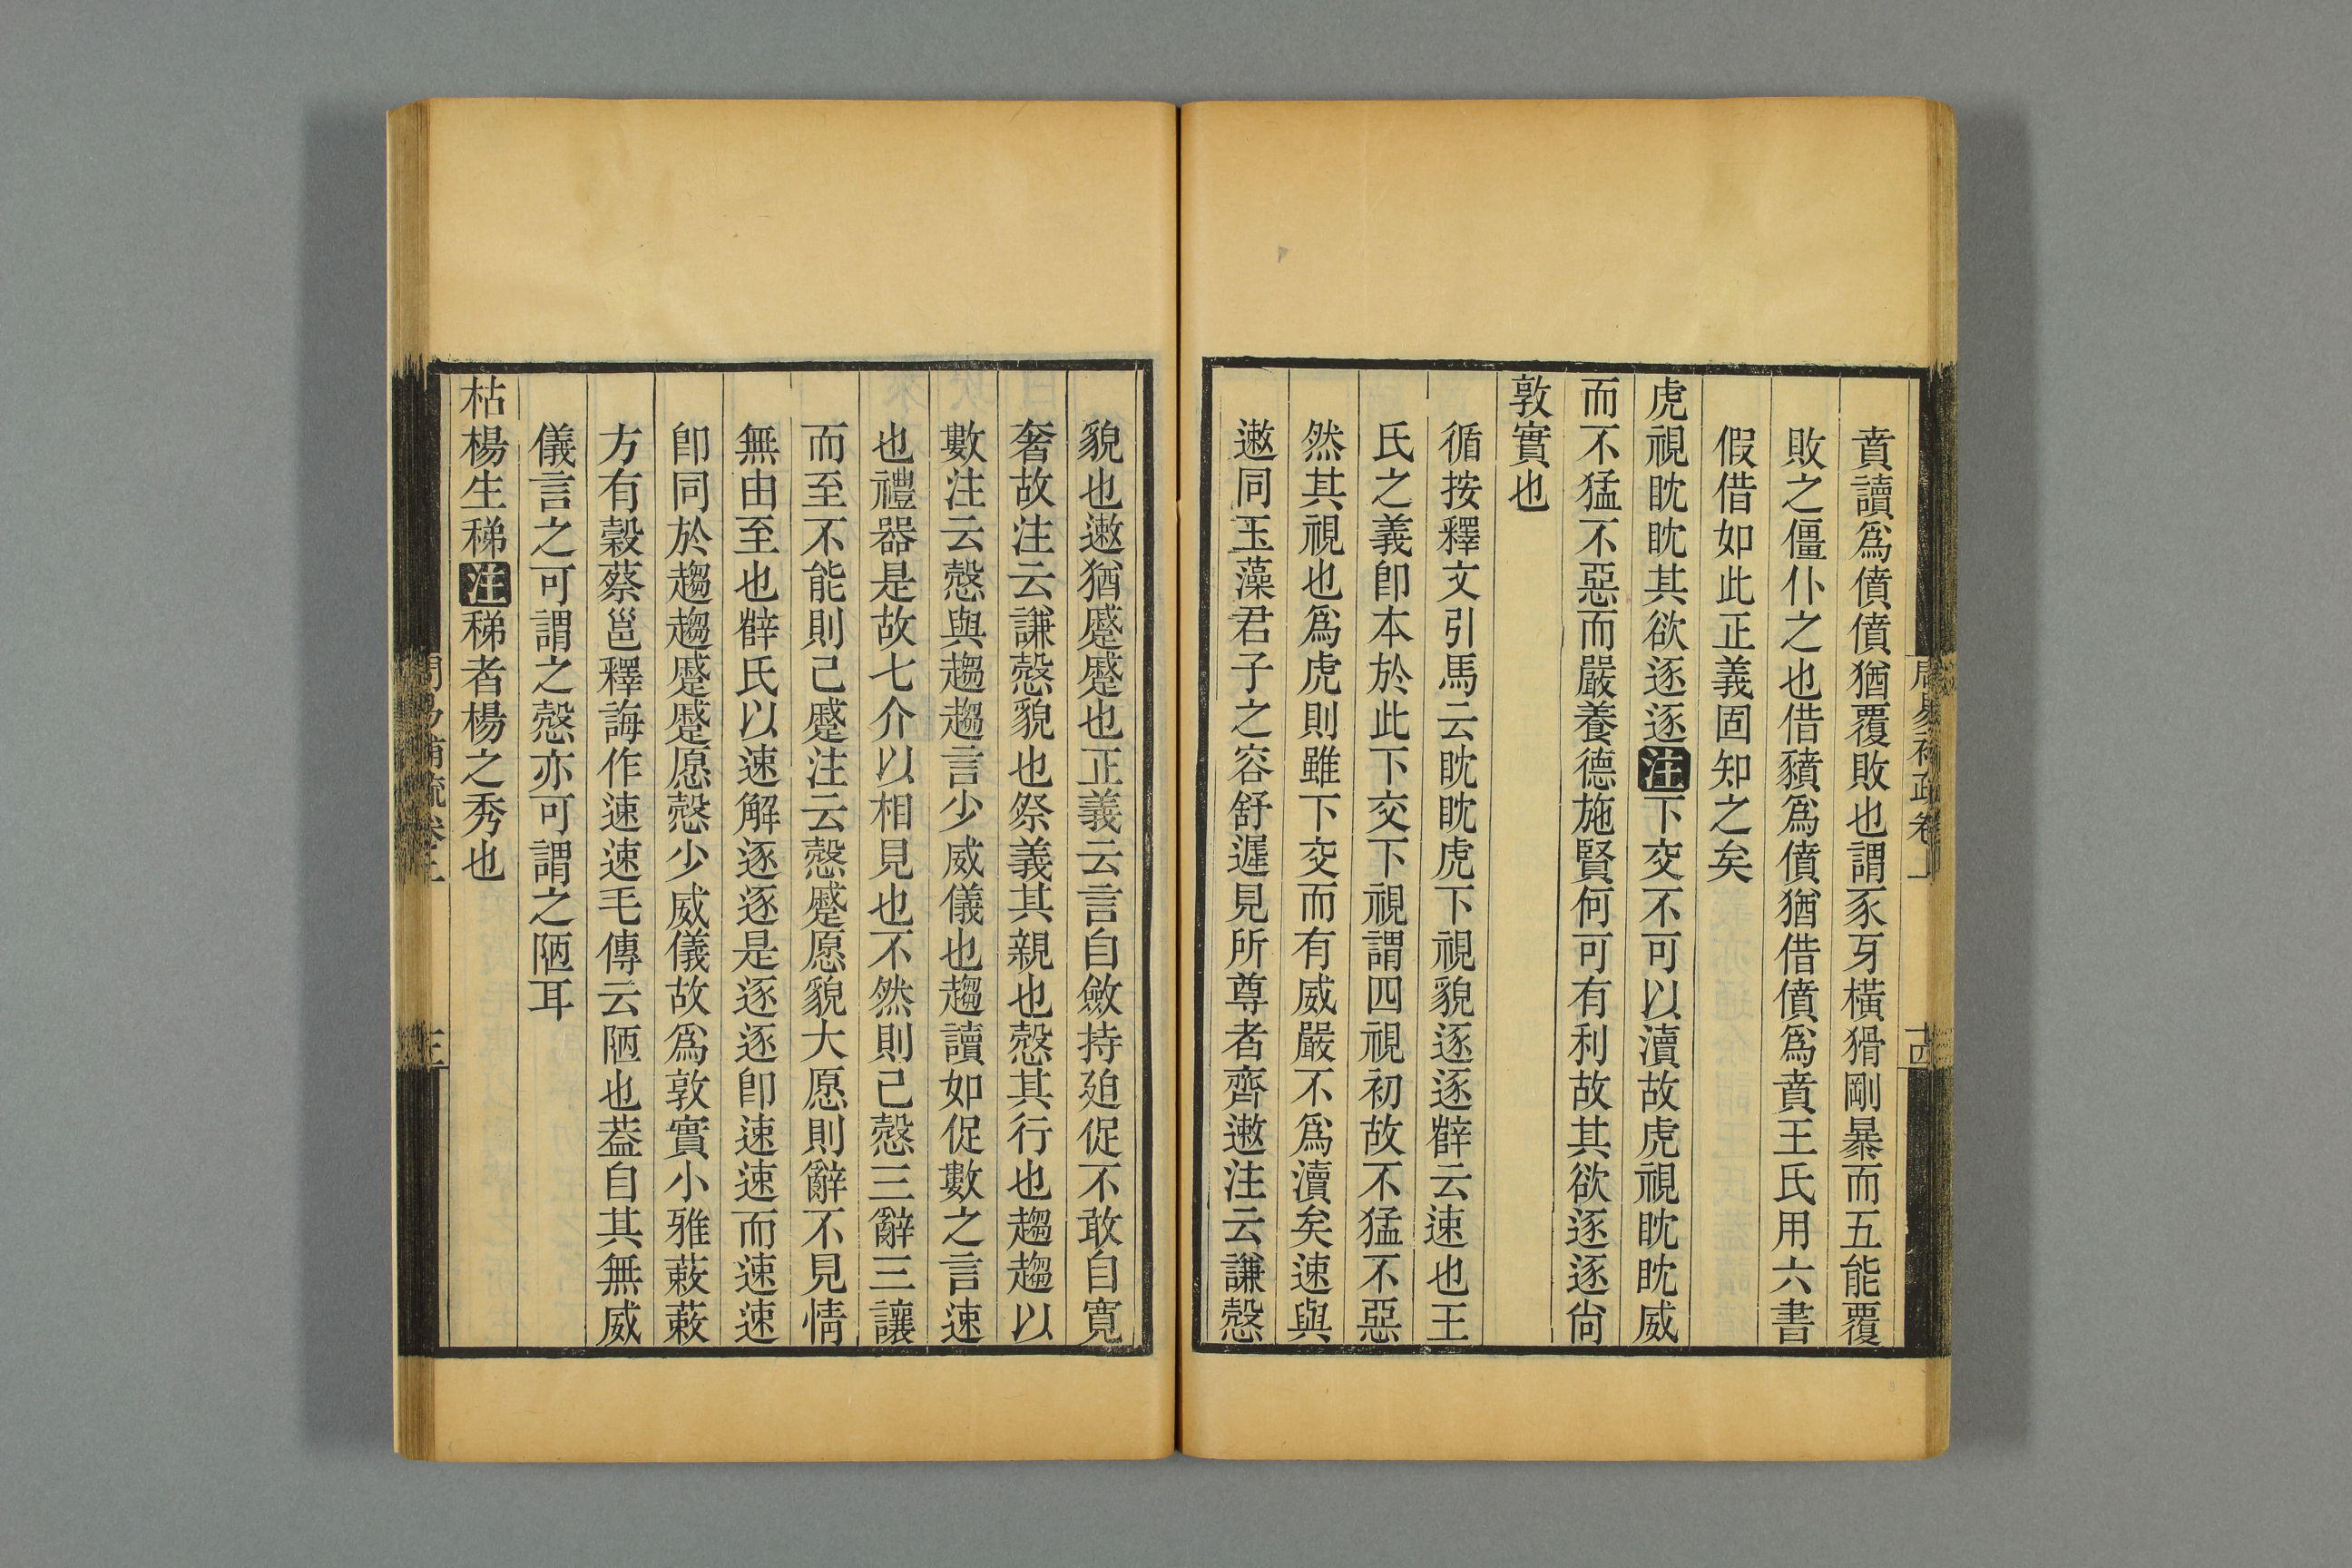 賁讀爲僨僨猶覆敗也謂豕牙橫猾剛暴而五能覆
敗之僵仆之也借豶爲僨猶借僨爲賁王氏用六書
假借如此正義固知之矣
虎視眈眈其欲逐逐注下交不可以瀆故虎視眈眈威
而不猛不惡而嚴養德施賢何可有利故其欲逐逐尙
敦實也
循按釋文引馬云眈眈虎下視貌逐逐辥云速也王
氏之義卽本於此下交下視謂四視初故不猛不惡
然其視也爲虎則雖下交而有威嚴不爲瀆矣速與
遬同玉藻君子之容舒遲見所尊者齊遬注云謙慤
貌也遬猶蹙蹙也正義云言自斂持廹促不敢自寬
奢故注云謙慤貌也祭義其親也慤其行也趨趨以
數注云慤與趨趨言少威儀也趨讀如促數之言速
也禮器是故七介以相見也不然則已慤三辭三讓
而至不能則已蹙注云慤蹙愿貌大愿則辭不見情
無由至也辥氏以速解逐逐是逐逐卽速速而速速
卽同於趨趨蹙蹙愿慤少威儀故爲敦實小雅蔌蔌
方有穀蔡邕釋誨作速速毛傳云陋也葢自其無威
儀言之可謂之慤亦可謂之陋耳
枯楊生稊注稊者楊之秀也